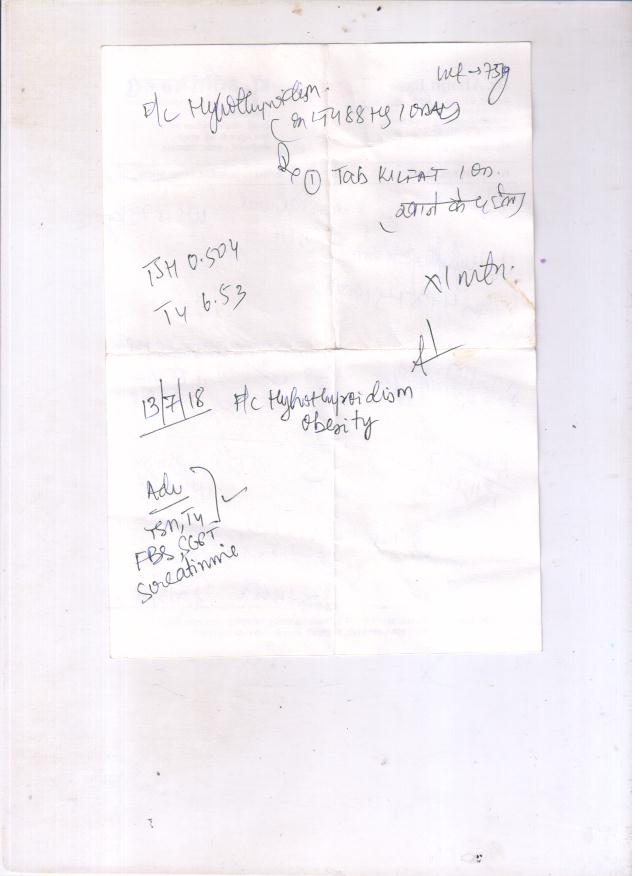 Wt → 75kg
F/c Hypothyroidism.
(on LT4 88 µg 1 OD
Rx ① Tab 1 OD.
TSH 0.504
T4 6.53
x 1 mth.
13/7/18 F/c Hypothyroidism
Obesity
Adv
TSH, T4
FBS, SGPT
S creatinine